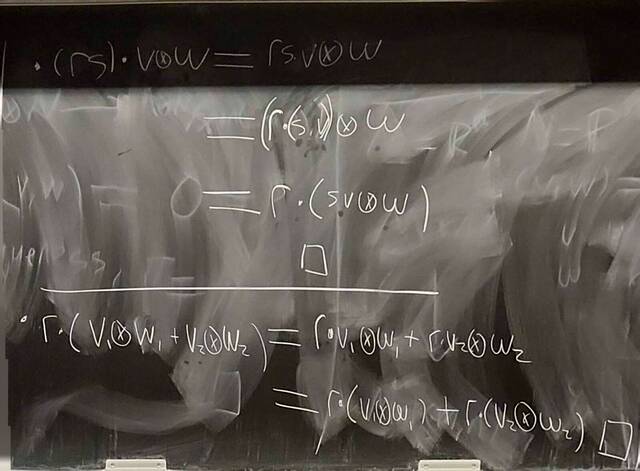 · (rs) · v⊗w = rs.v⊗w
= (r.(s.v))⊗w
= r · (sv⊗w)
□
· r · (v₁⊗w₁ + v₂⊗w₂) = r·v₁⊗w₁ + r.v₂⊗w₂
= r·(v₁⊗w₁) + r·(v₂⊗w₂) □